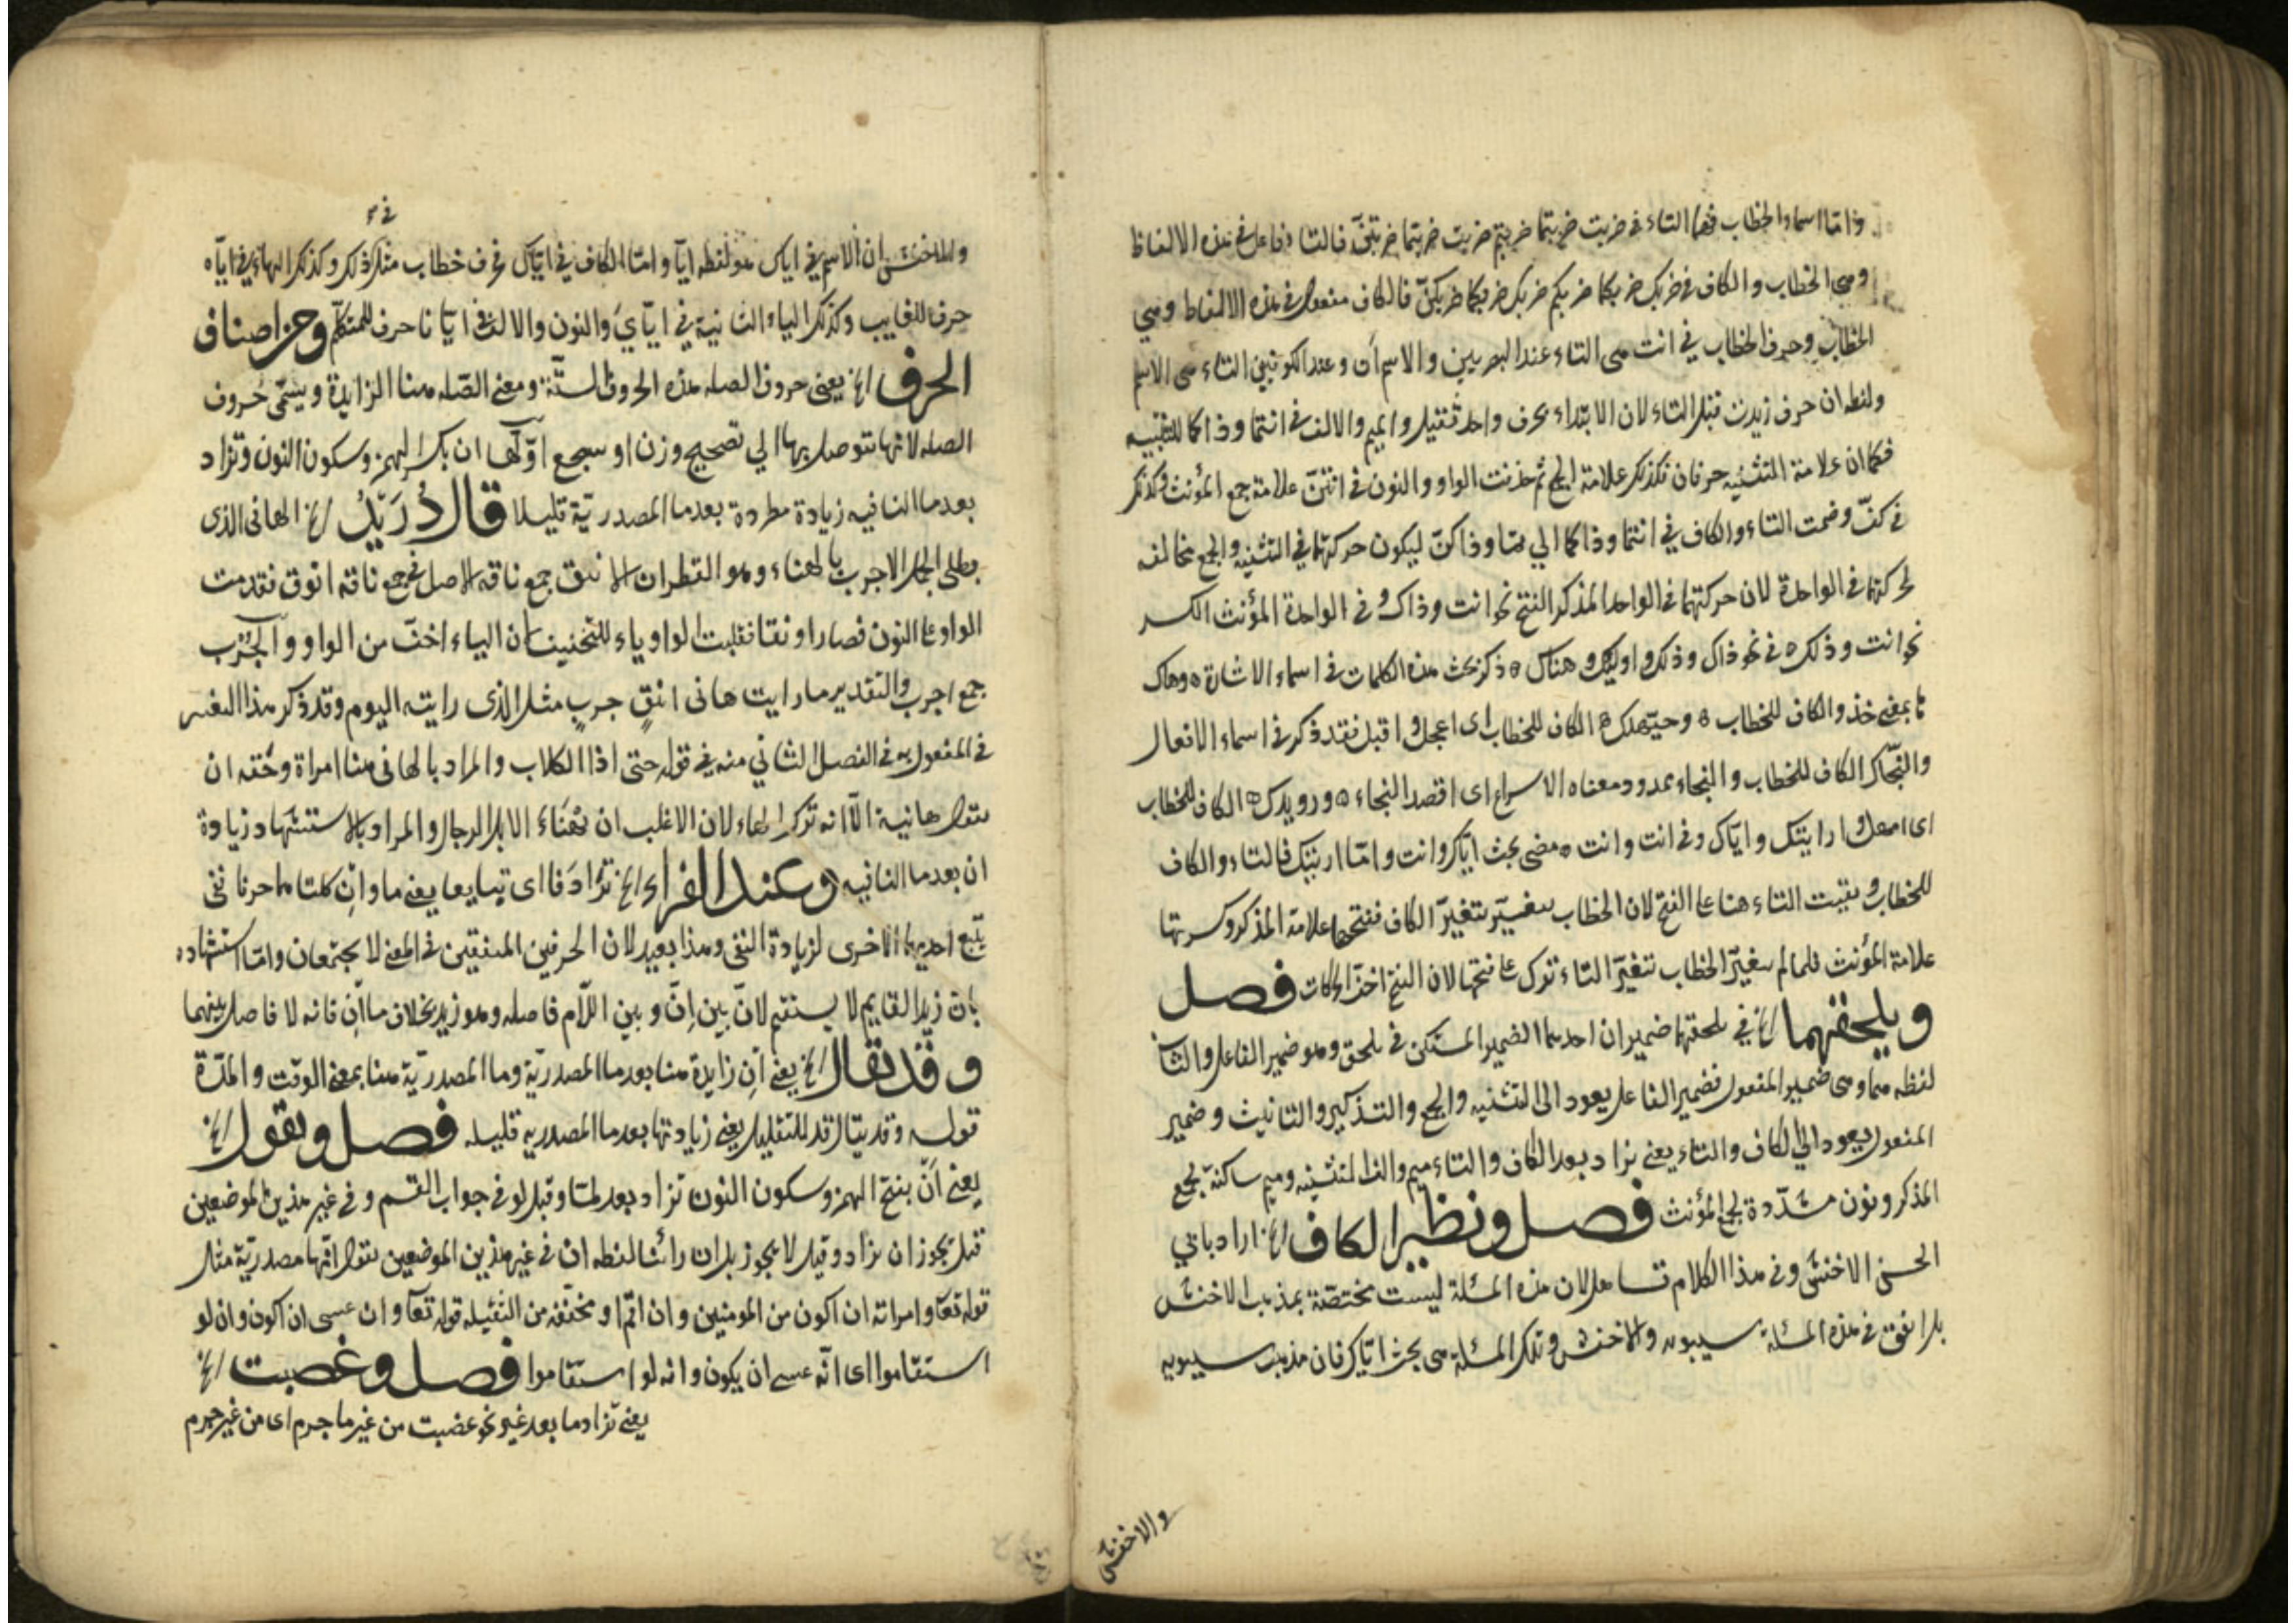 واما اسماء الخطاب فهما التاء في ضربت ضربتما ضربتم ضربت ضربتما ضربتن فالتاء فاعل في هذه الالفاظ
وهي الخطاب والكاف في ضربك ضربكما ضربكم ضربك ضربكما ضربكن فالكاف مفعول في هذه الالفاظ وهي
الخطاب وحرف الخطاب في انت هي التاء عند البصريين والاسم ان وعند الكوفيين التاء هي الاسم
ولفظه ان حرف زيدت قبل التاء لان الابتداء بحرف واحد ثقيل والميم والالف في انتما وذاكما للتثنيه
فكما ان علامة التثنيه حرفان فكذلك علامة الجمع ثم حذفت الواو والنون في انتن علامة جمع المؤنث وكذلك
في كن وضمت التاء والكاف في انتما وذاكما الي وذاكن ليكون حركتهما في التثنيه والجمع مخالفه
لحركتهما في الواحدة لان حركتهما في الواحد المذكر الفتح نحو انت وذاك وفي الواحدة المؤنث الكسر
نحو انت وذلك ه في نحو ذاك وذلك واوليك وهناك ه ذكر بحث هذه الكلمات في اسماء الاشارة ه وهاك
ها بمعنى خذ والكاف للخطاب ه وحيهلك ه الكاف للخطاب اى اعجل واقبل فقد ذكر في اسماء الافعال
والنجاك الكاف للخطاب والنجاء ممدود معناه الاسراع اى اقصد النجاء ه ورويدك ه الكاف للخطاب
اى امهل وارايتك واياك وفي انت وانت ه مضى بحث اياك وانت واما ارايتك فالتاء والكاف
للخطاب وبقيت التاء هنا على الفتح لان الخطاب يتغير بتغير الكاف ففتحها علامة المذكر وكسرتها
علامة المؤنث فلما لم يتغير الخطاب بتغير التاء ترك على فتحها لان الفتح اخف الحركات فصل
ويلحقهما الخ في يلحقهما ضميران احدهما الضمير المستكن في يلحق وهو ضمير الفاعل والثاني
لفظه هما وهى ضمير المفعول فضمير الفاعل يعود الى التثنيه والجمع والتذكير والتانيث وضمير
المفعول يعود الي الكاف والتاء يعنى تزاد بعد الكاف والتاء ميم والف لتثنيه وميم ساكنة لجمع
المذكر ونون مشددة لجمع المؤنث فصل ونظير الكاف الخ اراد بابي
الحسن الاخفش وفي هذا الكلام تساهل لان هذه المسئلة ليست مختصة بمذهب الاخفش
بل اتفق في هذه المسئلة سيبويه والاخفش وتلك المسئلة هى بحث اياك فان مذهب سيبويه
والاخفش
والاخفش ان الاسم في اياك هو لفظه ايا واما الكاف في اياك حرف خطاب مثل ذلك وكذلك الهاء في اياه
حرف للغايب وكذلك الياء الثانية في اياي والنون والالف في ايانا حرف للمتكلم ومن اصناف
الحرف الخ يعنى حروف الصله هذه الحروف الستة ومعنى الصله هنا الزايدة ويسمى حروف
الصله لانها يتوصل بها الي تصحيح وزن او سجع اولها ان بكسر الهمز وسكون النون وتزاد
بعد ما النافيه زيادة مطردة بعد ما المصدرية قليلا قال دريد الخ الهانى الذى
يطلى الجمل الاجرب بالهناء وهو القطران الاينق جمع ناقه الاصل في جمع ناقه انوق تقدمت
الواو على النون فصار اونقا فقلبت الواو ياء للتخفيف لان الياء اخف من الواو والجرب
جمع اجرب والتقدير ما رايت هانى اينق جرب مثل الذى رايته اليوم وقد ذكر هذا
في المفعول به في الفصل الثاني منه في قوله حتى اذا الكلاب والمراد بالهانى هنا امراة وحقه ان
يقول هانية الا انه ترك الهاء لان الاغلب ان يهنا الابل الرجال والمراد بالاستشهاد زيادة
ان بعد ما النافيه وعند الفراء الخ ترادفا اى تتابعا يعنى ما وان كلتاهما حرفا نفى
يتبع احديهما الاخرى لزيادة النفى وهذا بعيد لان الحرفين المتفقين في المعنى لا يجتمعان واما استشهاده
بان زيدا لقايم لا يستقيم لان بين ان وبين اللام فاصله وهو زيد بخلاف ما ان فانه لا فاصل بينهما
وقد يقال الخ يعنى ان زايدة هنا بعد ما المصدرية وما المصدرية هنا بمعنى الوقت والمدة
قوله وقد يقال قد للتقليل يعنى زيادتها بعد ما المصدرية قليله فصل ويقول الخ
يعنى ان بفتح الهمز وسكون النون تزاد بعد لما وقبل لو في جواب القسم وفي غير هذين الموضعين
قيل يجوز ان يزاد وقيل لا يجوز بل ان رايت لفظه ان في غير هذين الموضعين يقول انها مصدرية مثل
قوله تعا وامرت ان اكون من المومنين وان اقم او مخففه من الثقيله قوله تعا وان عسى ان اكون وان لو
استقاموا اى انه عسى ان يكون وانه لو استقاموا فصل وغضبت الخ
يعنى تزاد ما بعد غير نحو غضبت من غير ما جرم اى من غير جرم